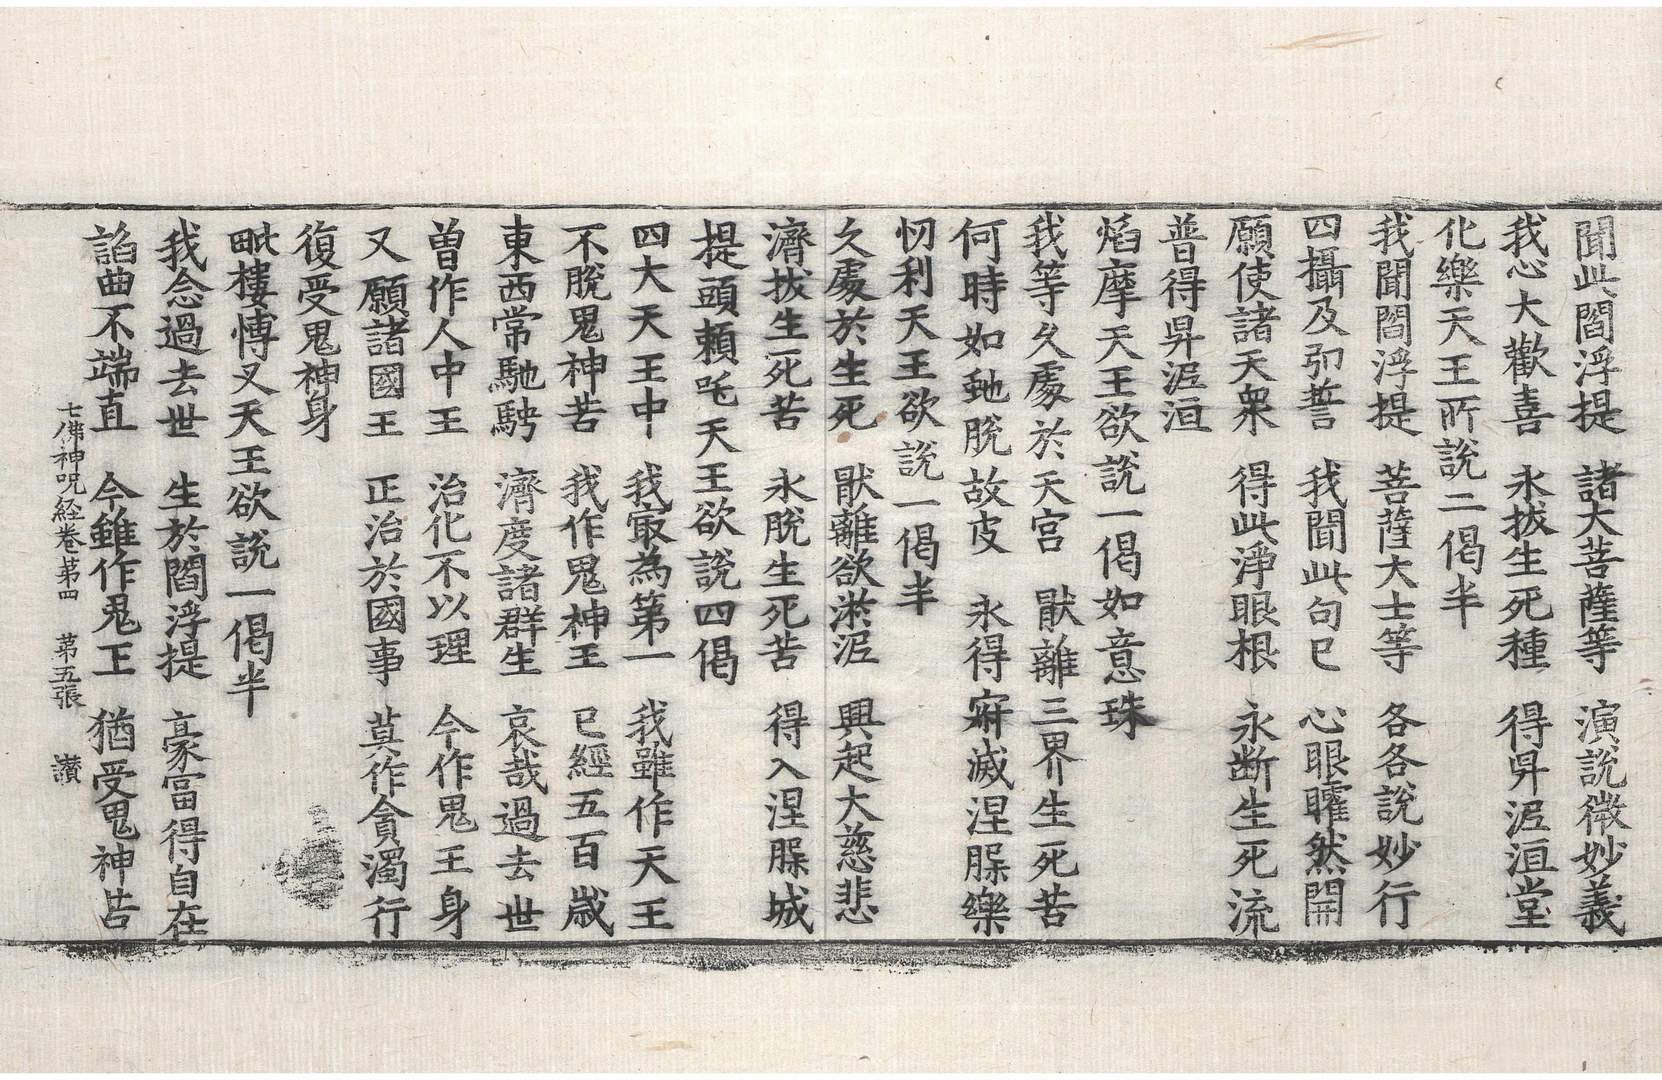 聞此閻浮提　諸大菩薩等　演說微妙義
我心大歡喜　永拔生死種　得昇泥洹堂
化樂天王所說二偈半
我聞閻浮提　菩薩大士等　各各說妙行
四攝及弘誓　我聞此句已　心眼曤然開
願使諸天衆　得此淨眼根　永断生死流
普得昇泥洹
焰摩天王欲說一偈如意珠
我等久處於天宮　猒離三界生死苦
何時如虵脫故皮　永得寂滅涅槃樂
忉利天王欲說一偈半
久處於生死　猒離欲淤泥　興起大慈悲
濟拔生死苦　永脫生死苦　得入涅槃城
提頭頼吒天王欲說四偈
四大天王中　我㝡為第一　我雖作天王
不脫鬼神苦　我作鬼神王　已經五百歲
東西常馳騁　濟度諸群生　哀哉過去世
曽作人中王　治化不以理　今作鬼王身
又願諸國王　正治於國事　莫作貪濁行
復受鬼神身
毗樓愽叉天王欲說一偈半
我念過去世　生於閻浮提　豪富得自在
諂曲不端直　今雖作鬼王　猶受鬼神苦
七佛神呪経卷第四　第五張　讃